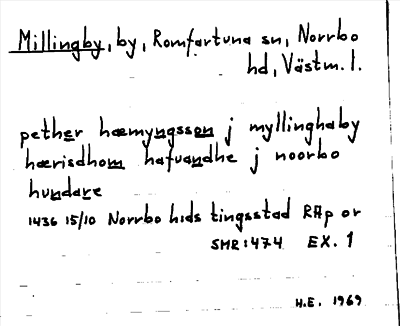 Millingby, by, Romfartuna sn, Norrbo
hd, Västm. l.
pether hæmyngsson j myllinghaby
hærisdhom hafuandhe j noorbo
hundare
1436 15/10 Norrbo hds tingsstad RAp or
SMR:474 EX. 1
H.E. 1969